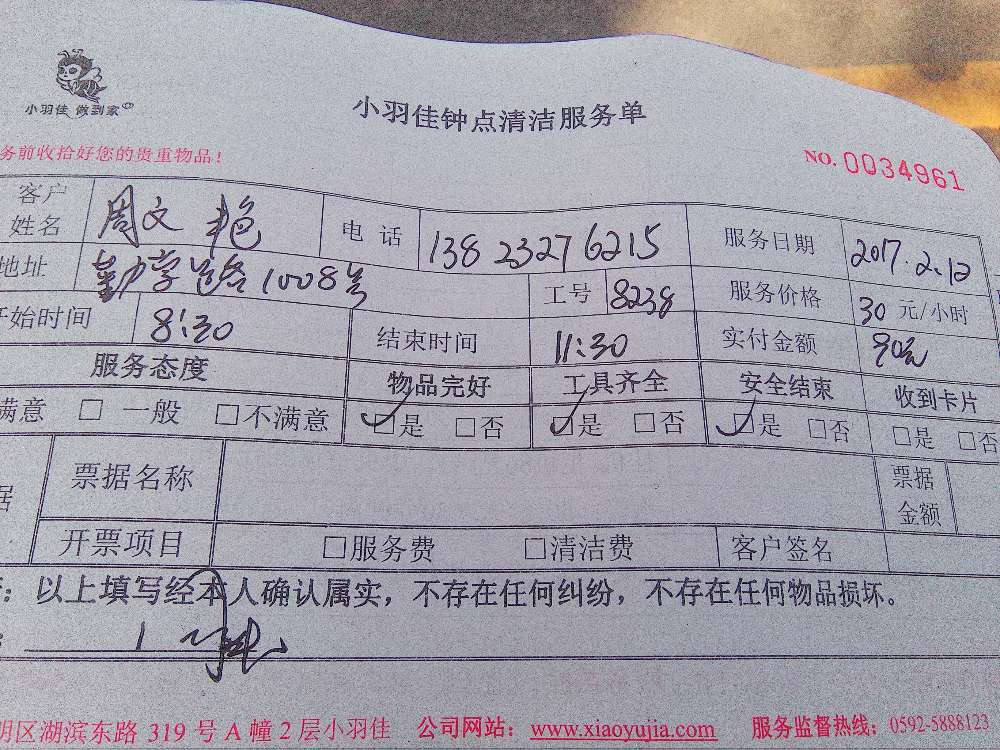 小羽佳 做到家
小羽佳钟点清洁服务单
务前收拾好您的贵重物品！
NO. 0034961
客户姓名 周文艳 电话 138 2327 6215 服务日期 2017.2.12
地址 勤学路1008号 工号 8238 服务价格 30 元/小时
开始时间 8:30 结束时间 11:30 实付金额 90元
服务态度 物品完好 工具齐全 安全结束 收到卡片
满意 □ 一般 □不满意 ☑是 □否 ☑是 □否 ☑是 □否 □是 □否
据 票据名称 票据金额
开票项目 □服务费 □清洁费 客户签名
：以上填写经本人确认属实，不存在任何纠纷，不存在任何物品损坏。
明区湖滨东路 319 号 A 幢 2 层小羽佳 公司网站：www.xiaoyujia.com 服务监督热线：0592-5888123